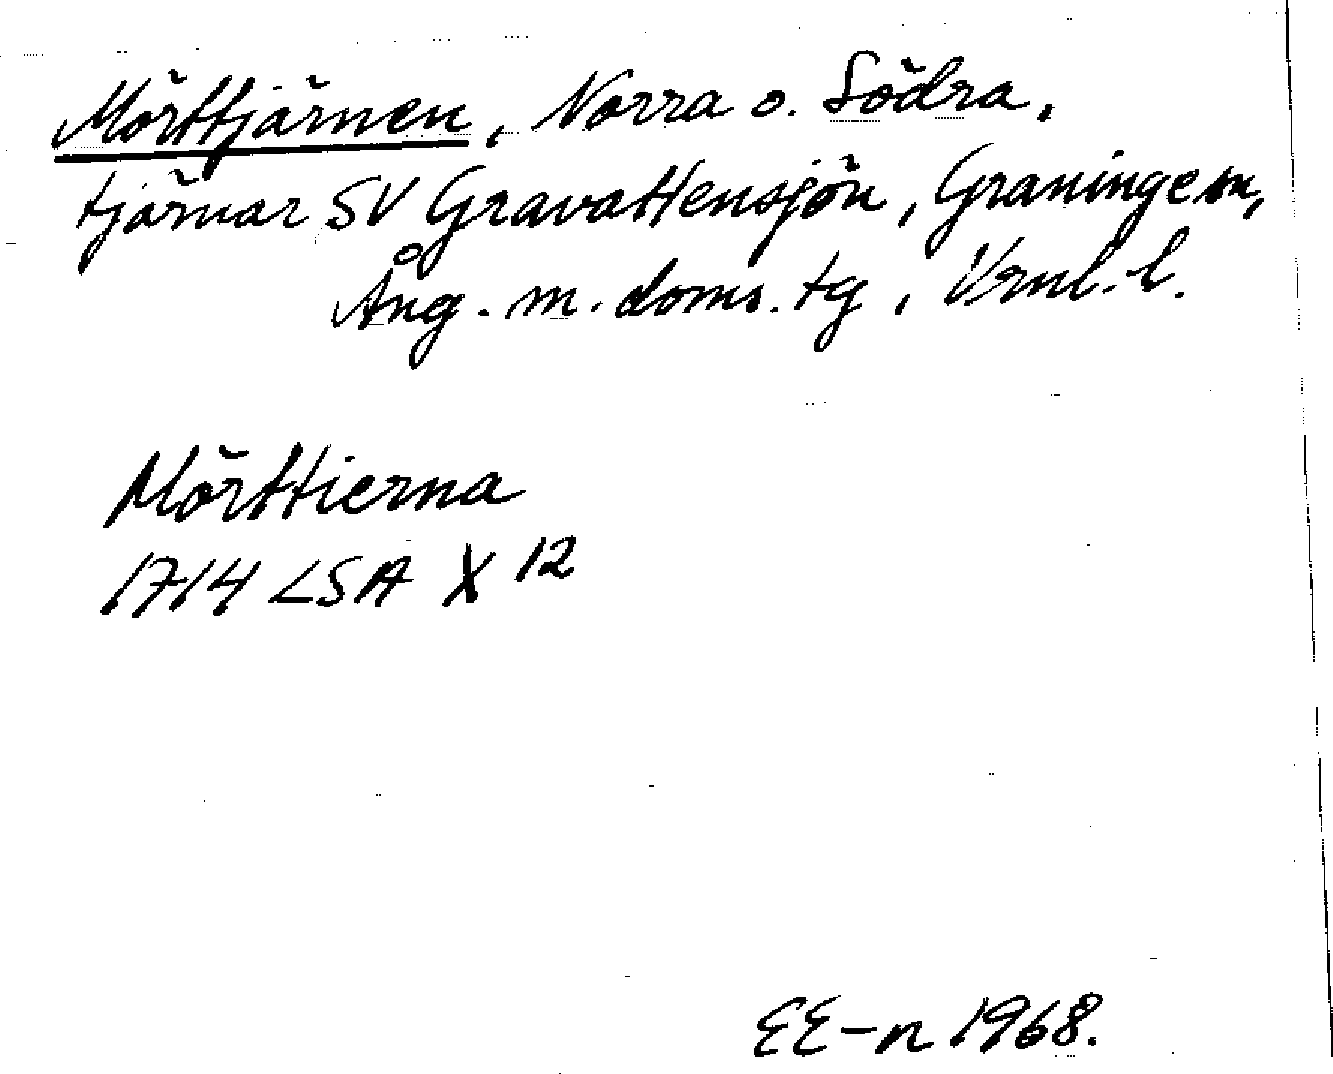 Mörttjärnen, Norra o. Södra,
tjärnar SV Gravattensjön, Graninge sn,
Ång. m. doms. tg, Vrnl. l.
Mörttierna
1714 LSA X 12
EE-n 1968.